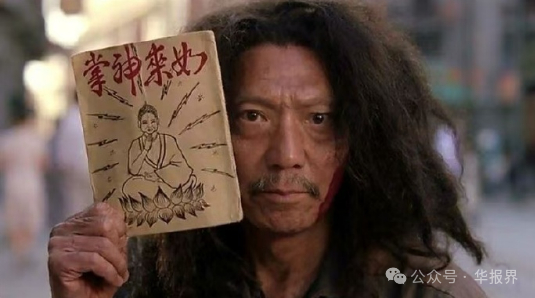 如來神掌
公众号·华报界